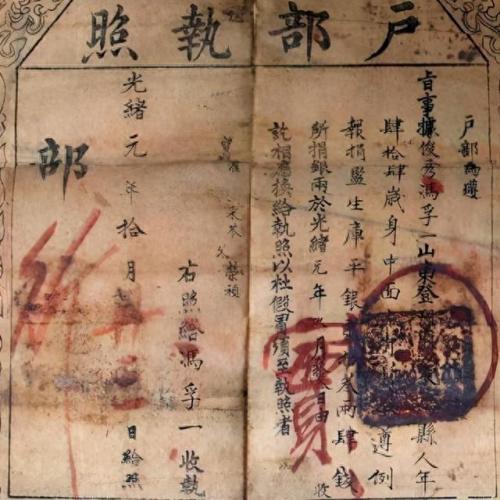 戶部執照
戶部為遵
旨事據俊秀馮孚一山東登州府 縣人年
肆拾肆歲身中面 遵例
報捐監生庫平銀 拾叁兩肆錢
所捐銀兩於光緒元年 月 日由 收
訖相應換給執照以杜假冒須至執照者
曾祖 祖 父榮禎
右照給馮孚一收執
光緒元年拾月 日給照
部
實